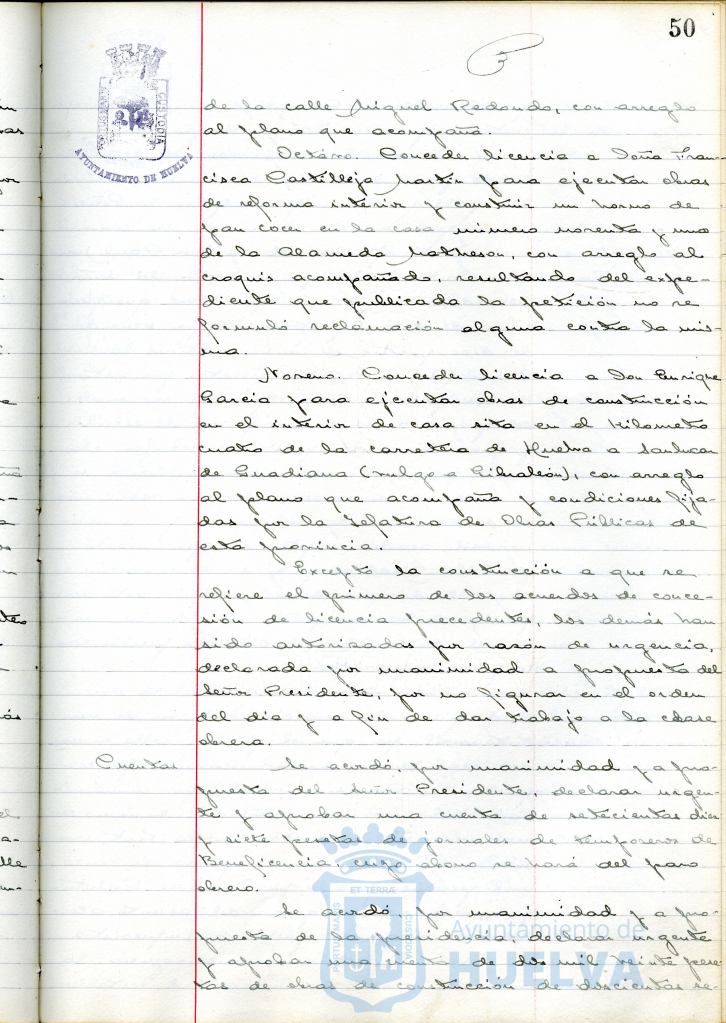 50
de la calle Miguel Redondo, con arreglo
al plano que acompaña.
Octavo. Conceder licencia a Doña Fran-
cisca Castilleja Martin para ejecutar obras
de reforma interior y construir un horno de
pan cocer en la casa número noventa y uno
de la Alameda Matheson, con arreglo al
croquis acompañado, resultando del expe-
diente que publicada la petición no se
formuló reclamación alguna contra la mis-
ma.
Noveno. Conceder licencia a Don Enrique
Garcia para ejecutar obras de construcción
en el interior de casa sita en el Kilometro
cuatro de la carretera de Huelva a Sanlucar
de Guadiana (vulgo a Gibraleón), con arreglo
al plano que acompaña y condiciones fija-
das por la Jefatura de Obras Públicas de
esta provincia.
Excepto la construcción a que se
refiere el primero de los acuerdos de conce-
sión de licencia precedentes, los demás han
sido autorizadas por razón de urgencia,
declarada por unanimidad a propuesta del
Señor Presidente, por no figurar en el orden
del dia y a fin de dar trabajo a la clase
obrera.
Cuentas
Se acordó, por unanimidad y a pro-
puesta del Señor Presidente, declarar urgen-
te y aprobar una cuenta de setecientas diez
y siete pesetas de jornales de temporeros de
Beneficencia, cuyo abono se hará del paro
obrero.
Se acordó, por unanimidad y a pro-
puesta de la presidencia, declarar urgente
y aprobar una cuenta de dos mil veinte pese-
tas de obras de construcción de doscientas se-
AYUNTAMIENTO DE HUELVA
CUSTODIA
PORTUS MARIS ET TERRÆ CUSTODIA
Ayuntamiento de
HUELVA